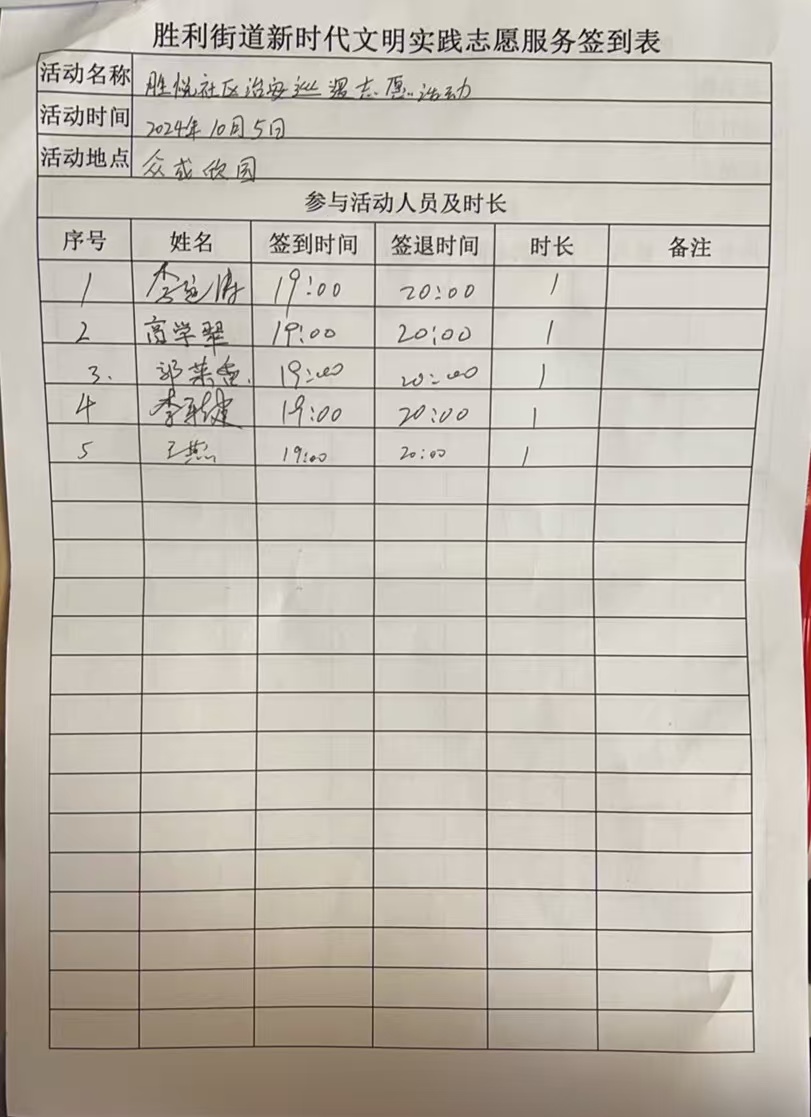 胜利街道新时代文明实践志愿服务签到表
活动名称 胜悦社区治安巡逻志愿活动
活动时间 2024年10月5日
活动地点 众成欣园
参与活动人员及时长
序号 姓名 签到时间 签退时间 时长 备注
1 19:00 20:00 1
2 高学翠 19:00 20:00 1
3. 郭荣 19:00 20:00 1
4 李建 19:00 20:00 1
5 王燕 19:00 20:00 1